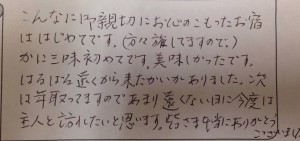 こんなに御親切にお心のこもったお宿
ははじめてです。(方々旅してますので、)
かに三昧初めてです。美味しかったです。
はるばる遠くから来たかいがありました。次
は年取ってますのであまり遠くない日に今度は
主人と訪れたいと思います。皆さま本当にありがとう
ございました